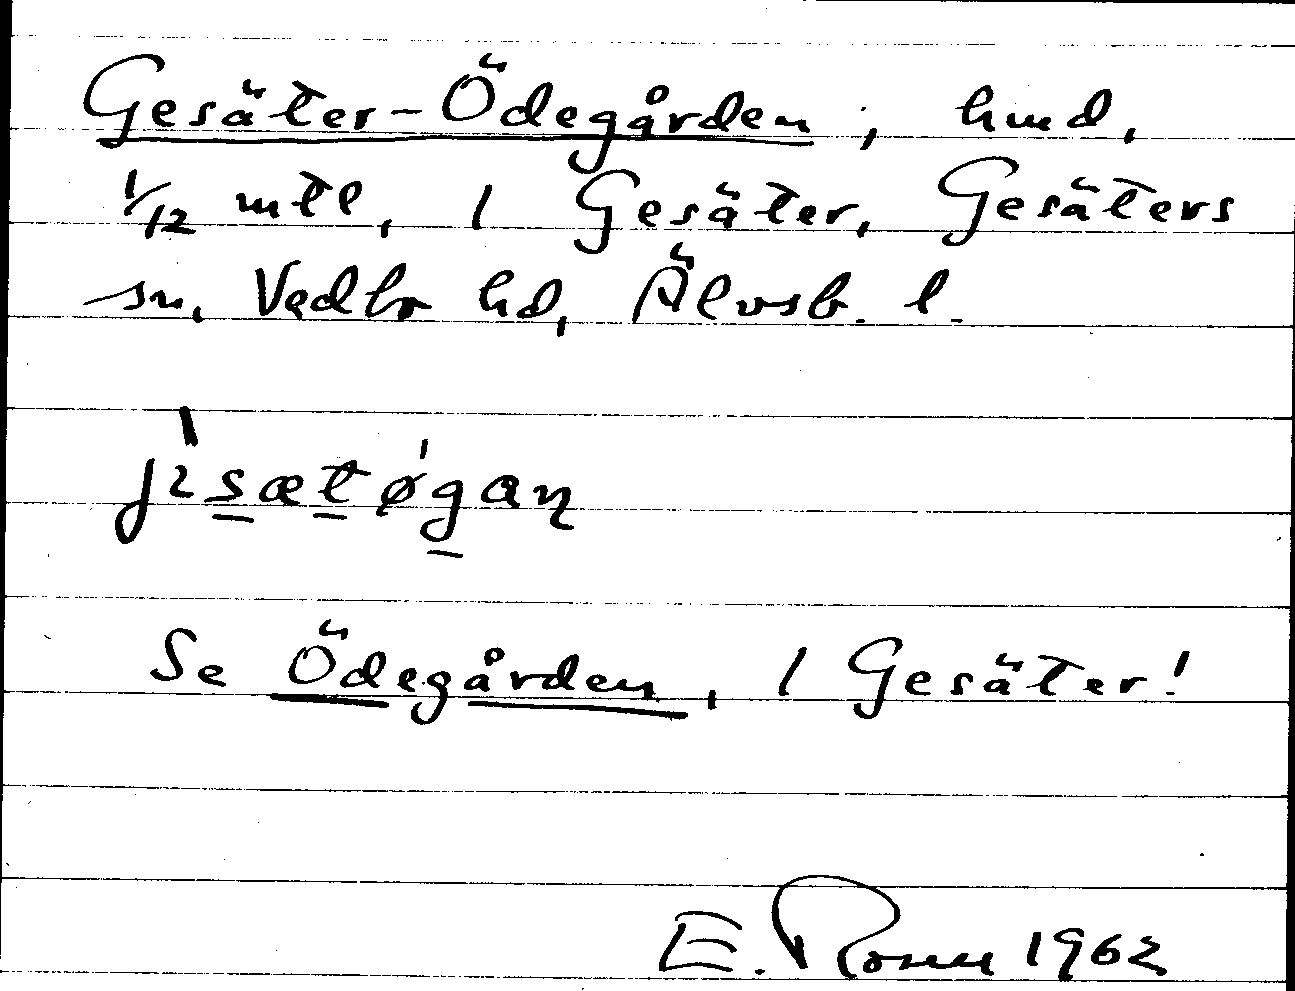 Gesäter-Ödegården, hmd,
1/12 mtl, 1 Gesäter, Gesäters
sn, Vedbo hd, Älvsb. l.
jisætøgaɳ
Se Ödegården, 1 Gesäter!
E. Rosell 1962